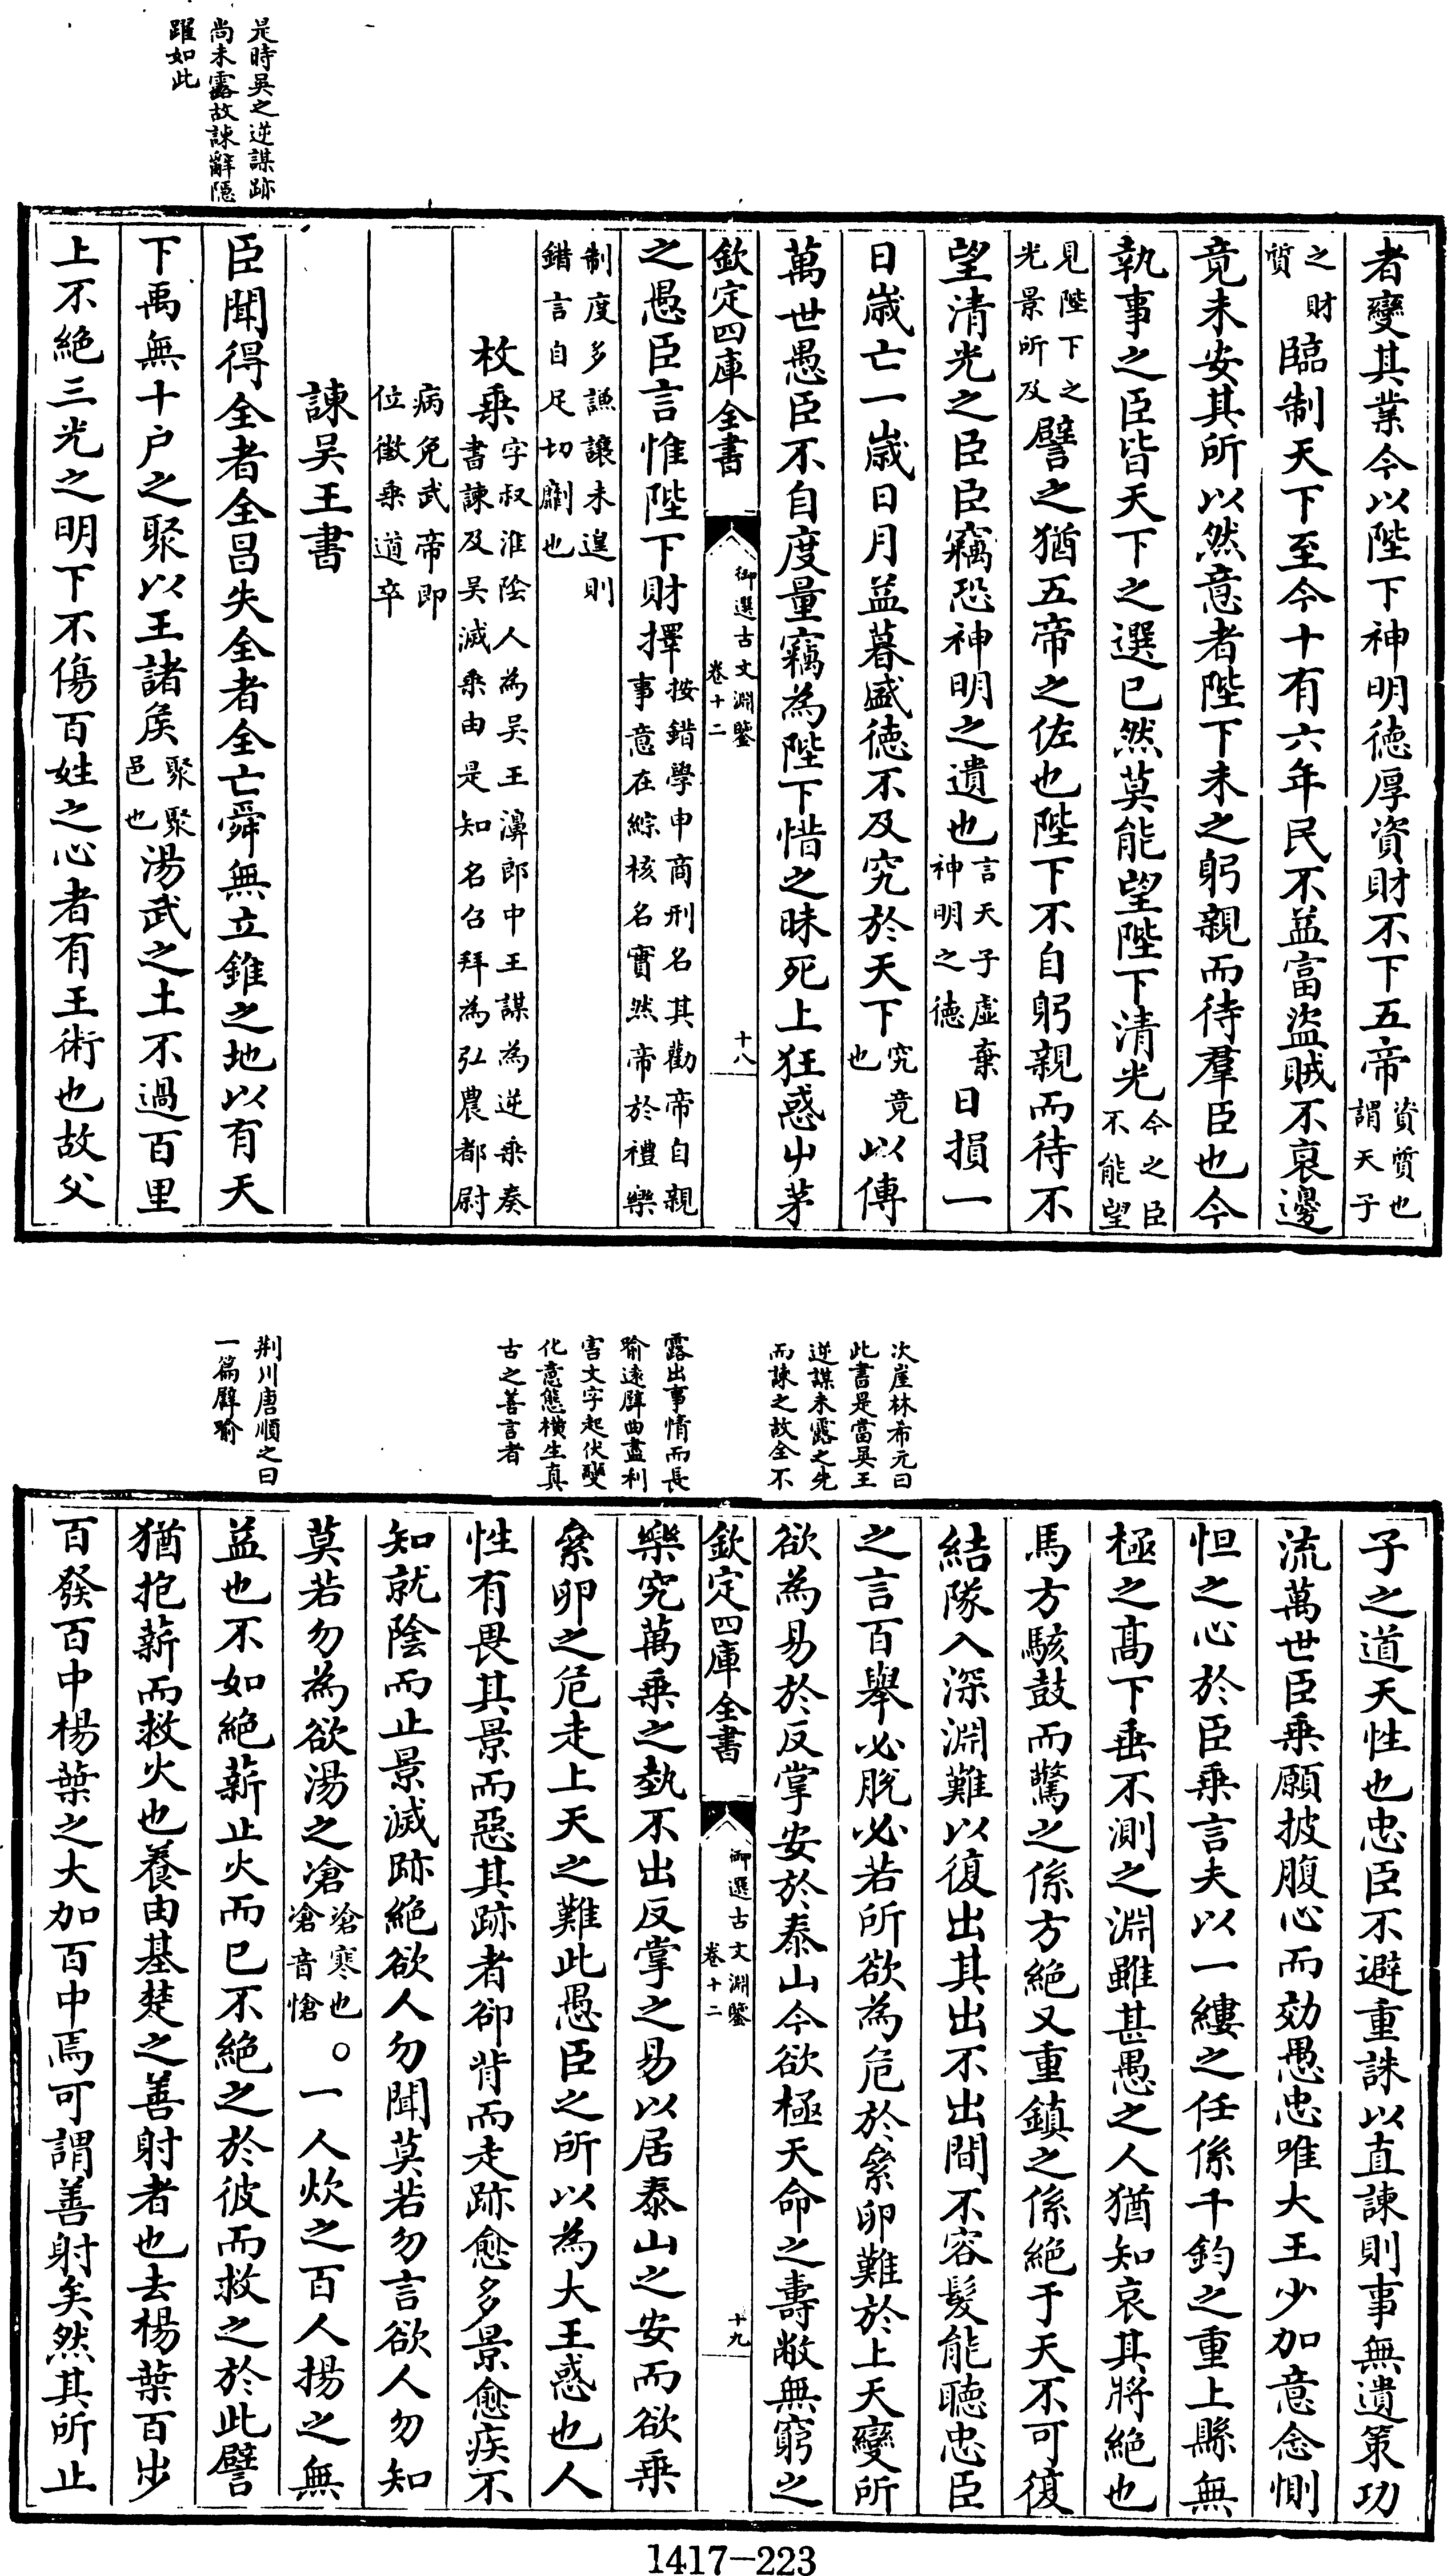 是時吳之逆謀跡
尚未露故諫辭隱
躍如此
者變其業今以陛下神明徳厚資財不下五帝資質也謂天子
之財質臨制天下至今十有六年民不益富盜賊不衰邊
竟未安其所以然意者陛下未之躬親而待羣臣也今
執事之臣皆天下之選已然莫能望陛下清光今之臣不能望
見陛下之光景所及譬之猶五帝之佐也陛下不自躬親而待不
望清光之臣臣竊恐神明之遺也言天子虛棄神明之徳日損一
日嵗亡一嵗日月益暮盛徳不及究於天下究竟也以傳
萬世愚臣不自度量竊為陛下惜之昧死上狂惑屮茅
欽定四庫全書 御選古文淵鑒卷十二 十八
之愚臣言惟陛下財擇按錯學申商刑名其勸帝自親事意在綜核名實然帝於禮樂
制度多謙讓未遑則錯言自足切劘也
枚乗字叔淮隂人為吳王濞郎中王謀為逆乗奏書諫及吳滅乗由是知名召拜為弘農都尉
病免武帝即位徴乗道卒
諫吳王書
臣聞得全者全昌失全者全亡舜無立錐之地以有天
下禹無十户之聚以王諸矦聚聚邑也湯武之土不過百里
上不絶三光之明下不傷百姓之心者有王術也故父
次崖林希元曰
此書是當吳王
逆謀未露之先
而諫之故全不
露出事情而長
喻遠辟曲盡利
害文字起伏變
化意態横生真
古之善言者
荆川唐順之曰
一篇辟喻
子之道天性也忠臣不避重誅以直諫則事無遺策功
流萬世臣乗願披腹心而効愚忠唯大王少加意念惻
怛之心於臣乗言夫以一縷之任係千鈞之重上縣無
極之髙下垂不測之淵雖甚愚之人猶知哀其將絶也
馬方駭鼓而驚之係方絶又重鎮之係絶于天不可復
結隊入深淵難以復出其出不出間不容髮能聽忠臣
之言百舉必脱必若所欲為危於絫卵難於上天變所
欲為易於反掌安於泰山今欲極天命之壽敝無窮之
欽定四庫全書 御選古文淵鑒卷十二 十九
樂究萬乗之埶不出反掌之易以居泰山之安而欲乗
絫卵之危走上天之難此愚臣之所以為大王惑也人
性有畏其景而惡其跡者卻背而走跡愈多景愈疾不
知就隂而止景滅跡絶欲人勿聞莫若勿言欲人勿知
莫若勿為欲湯之凔凔寒也凔音愴○一人炊之百人揚之無
益也不如絶薪止火而已不絶之於彼而救之於此譬
猶抱薪而救火也養由基楚之善射者也去楊葉百步
百發百中楊葉之大加百中焉可謂善射矣然其所止
1417—223